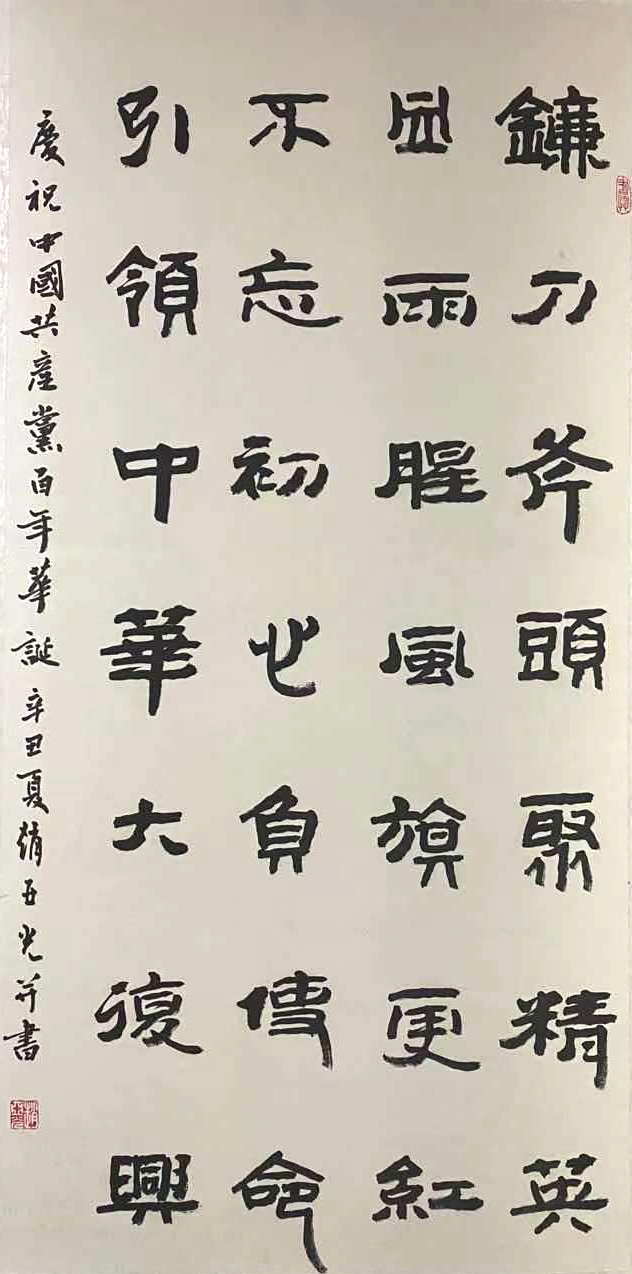 鐮刀斧頭聚精英
血雨腥風旗更紅
不忘初心負使命
引領中華大復興
慶祝中國共產黨百年華誕 辛丑夏趙五光并書